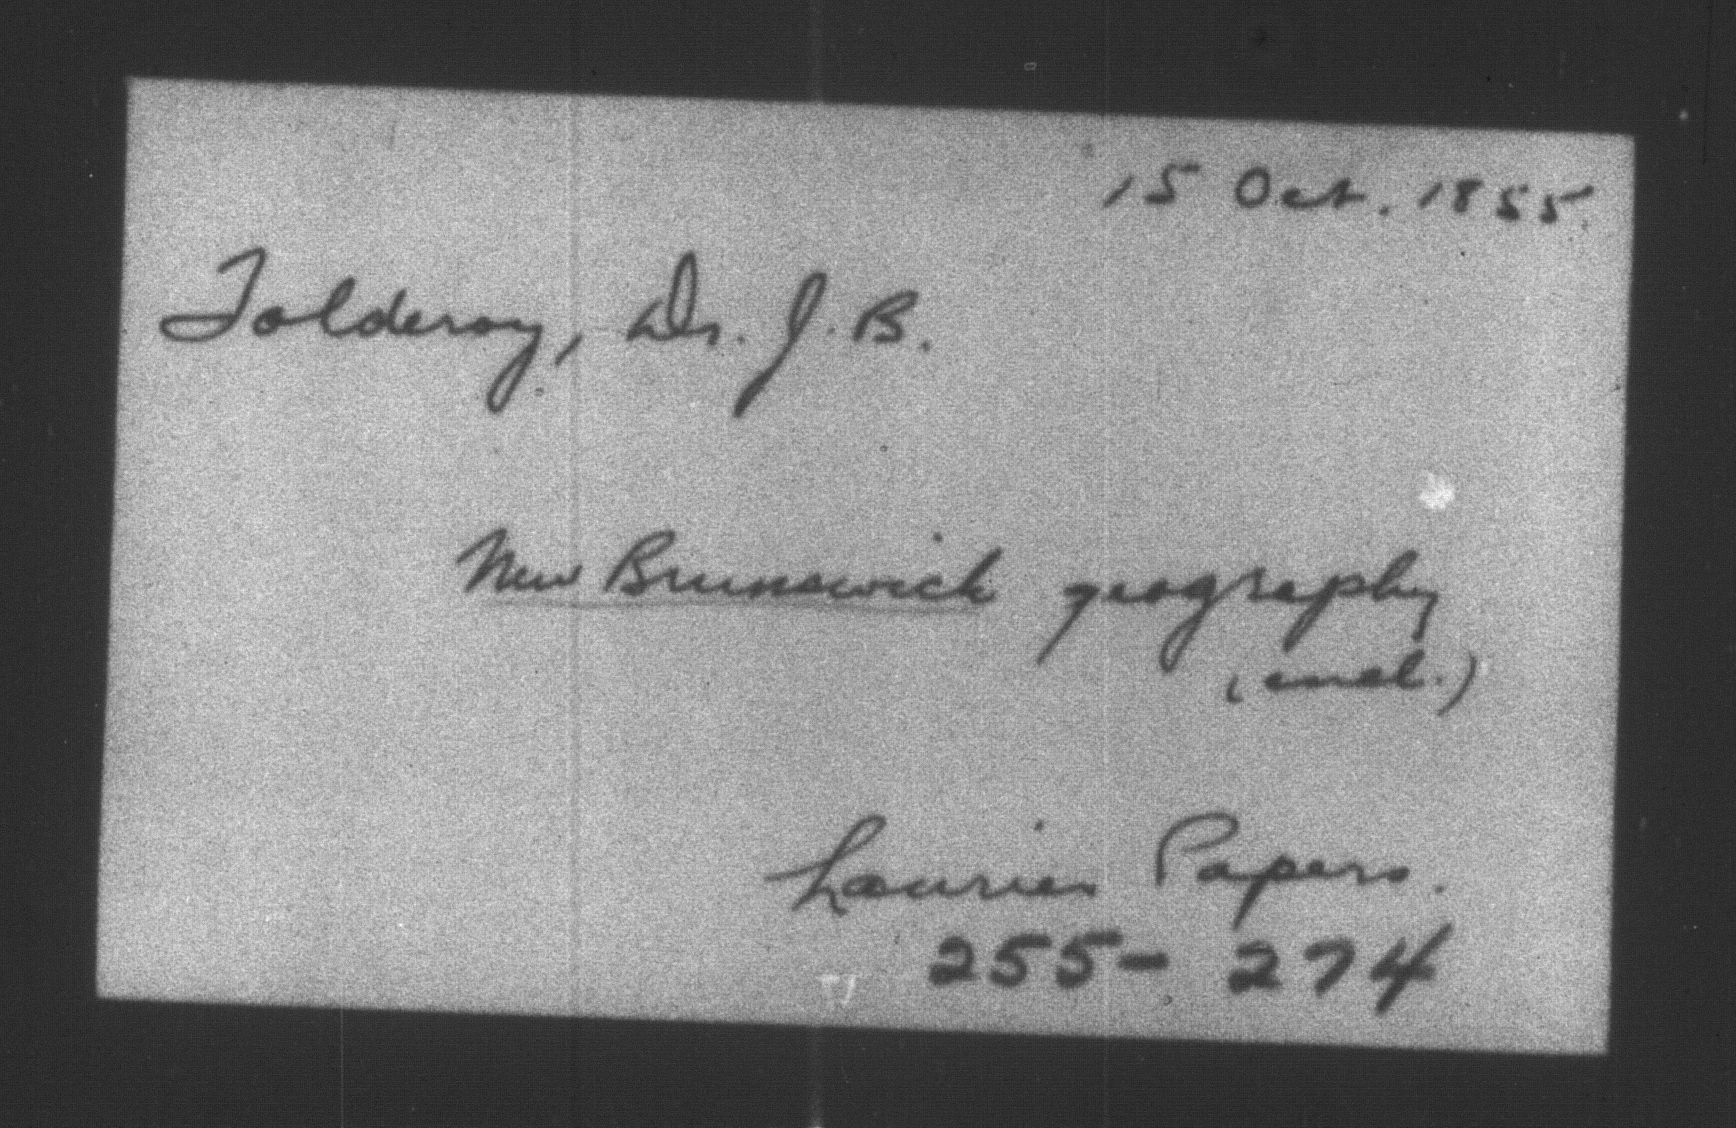 15 Oct. 1855.
Tolderoy, Dr. J. B.
New Brunswick geography
(encl.)
Laurier Papers.
255-274